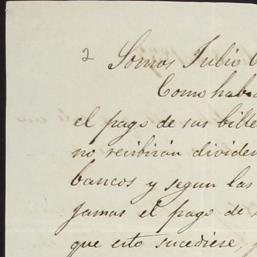 2
Somos Julio
Como hab
el pago de sus bille
no recibirán dividen
bancos y segun las
jamas el pago de
que esto sucediese,